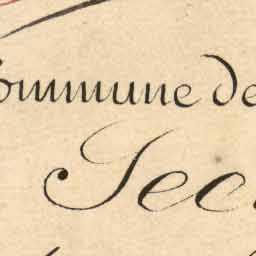 Commune de
Sec